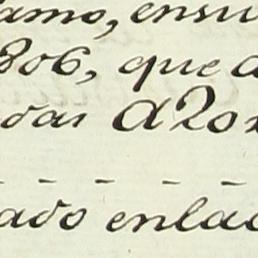 lamo, ensu
806, que a
das a20
ado enlac